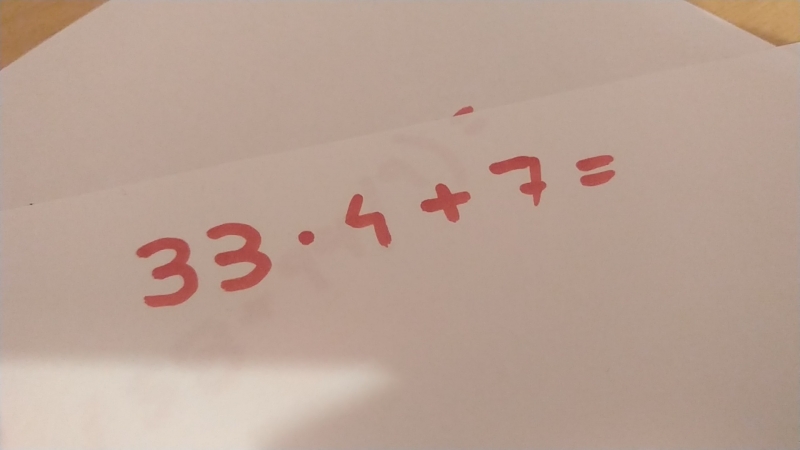 33·4+7=